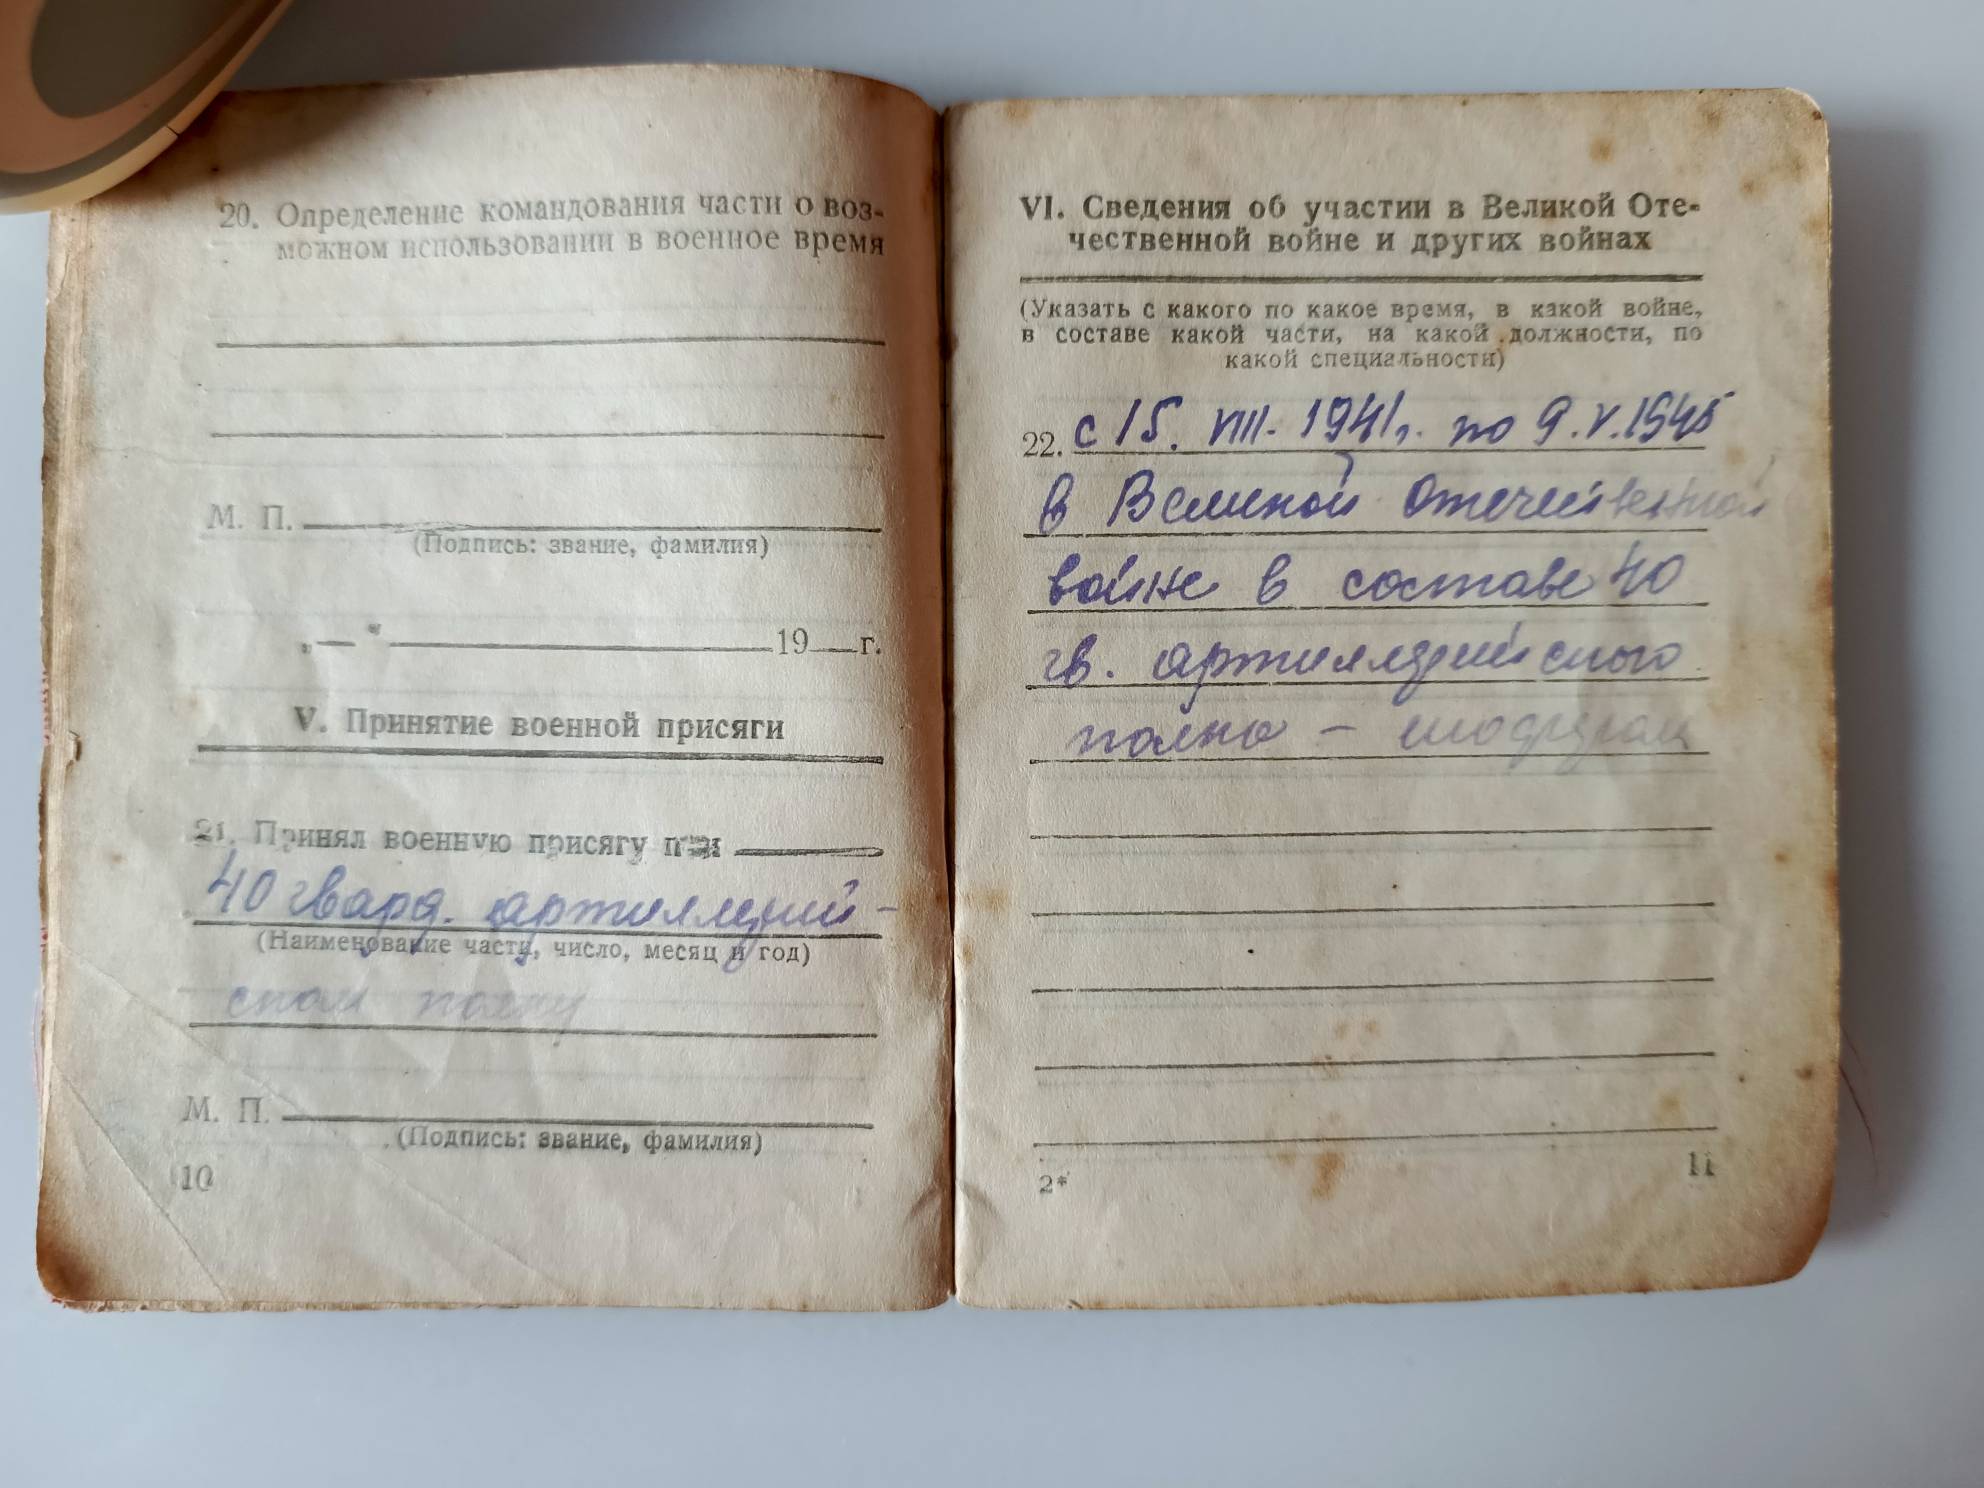 20. Определение командования части о воз-
можном использовании в военное время
М. П.
(Подпись: звание, фамилия)
„— “ 19 г.
V. Принятие военной присяги
21. Принял военную присягу при
40 гвард. артиллерий-
(Наименование части, число, месяц и год)
ском полку
М. П.
(Подпись: звание, фамилия)
10
VI. Сведения об участии в Великой Оте-
чественной войне и других войнах
(Указать с какого по какое время, в какой войне,
в составе какой части, на какой должности, по
какой специальности)
22. с 15. VIII. 1941г. по 9.V.1945
в Великой Отечественной
войне в составе 40
гв. артиллерийского
полка – шофером
2*
11